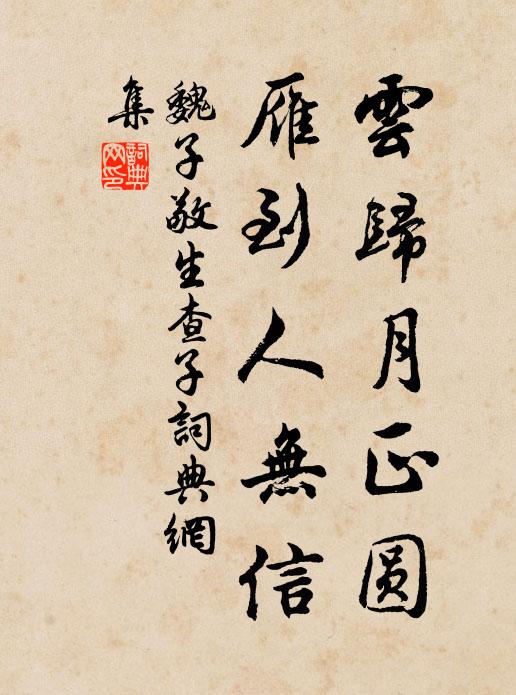 雲歸月正圆
雁到人無信
魏子敬生查子詞典網
集
詞典網印